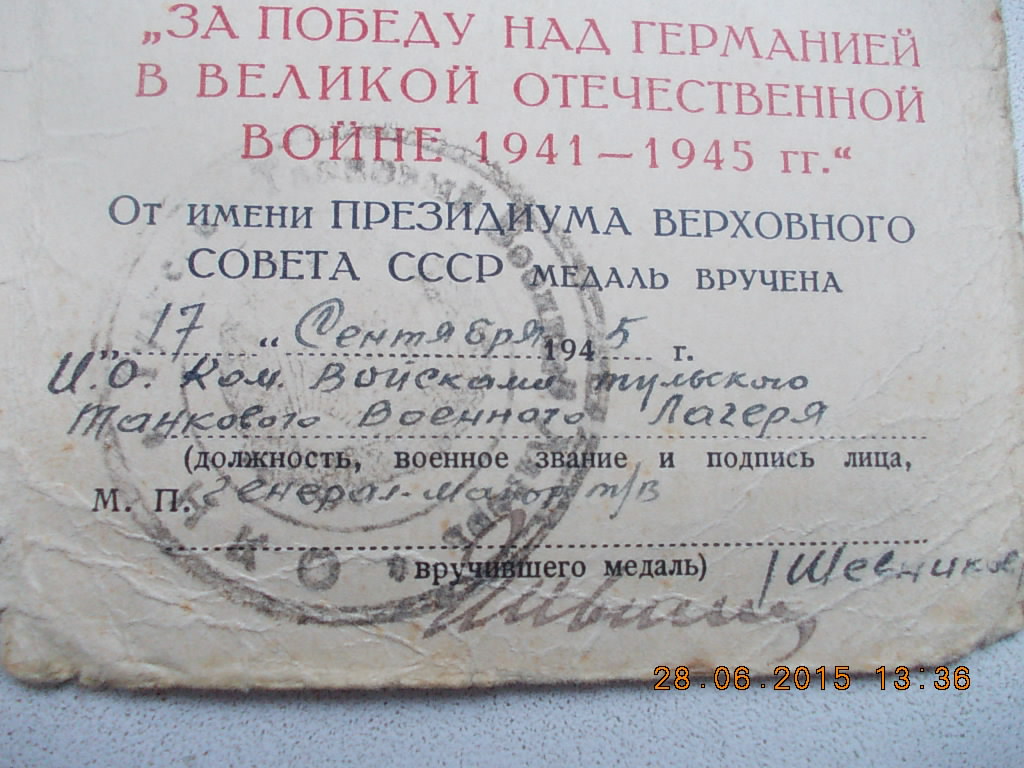 „ЗА ПОБЕДУ НАД ГЕРМАНИЕЙ
В ВЕЛИКОЙ ОТЕЧЕСТВЕННОЙ
ВОЙНЕ 1941—1945 гг.“
От имени ПРЕЗИДИУМА ВЕРХОВНОГО
СОВЕТА СССР МЕДАЛЬ ВРУЧЕНА
„ 17 “ Сентября 1945 г.
И.О. Ком. Войсками тульского
Танкового Военного Лагеря
(должность, военное звание и подпись лица,
М. П. Генерал-Майор т/в
вручившего медаль) /Шевников/
28.06.2015 13:36